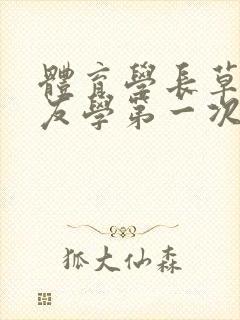 體育學長草
友學第一次
狐大仙森